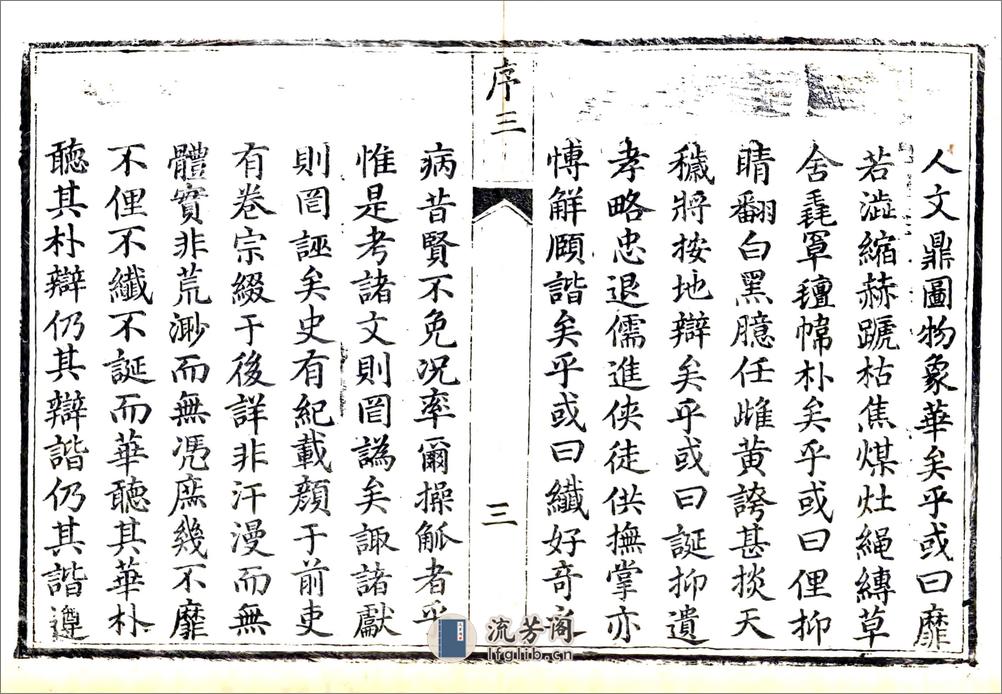 人文鼎圖物象華矣乎或曰靡
若澁縮赫蹏枯焦煤灶繩縳草
舍毳罩氊幃朴矣乎或曰俚抑
睛翻白黑臆任雌黄誇甚掞天
穢將按地辯矣乎或曰誕抑遺
孝略忠退儒進俠徒供撫掌亦
愽解頤諧矣乎或曰纖好竒之
序三
三
病昔賢不免况率爾操觚者乎
惟是考諸文則罔譌矣諏諸獻
則罔誣矣史有紀載顏于前吏
有卷宗綴于後詳非汗漫而無
體實非荒渺而無凴庶幾不靡
不俚不纖不誕而華聽其華朴
聽其朴辯仍其辯諧仍其諧遵
流芳阁
lfglib.cn